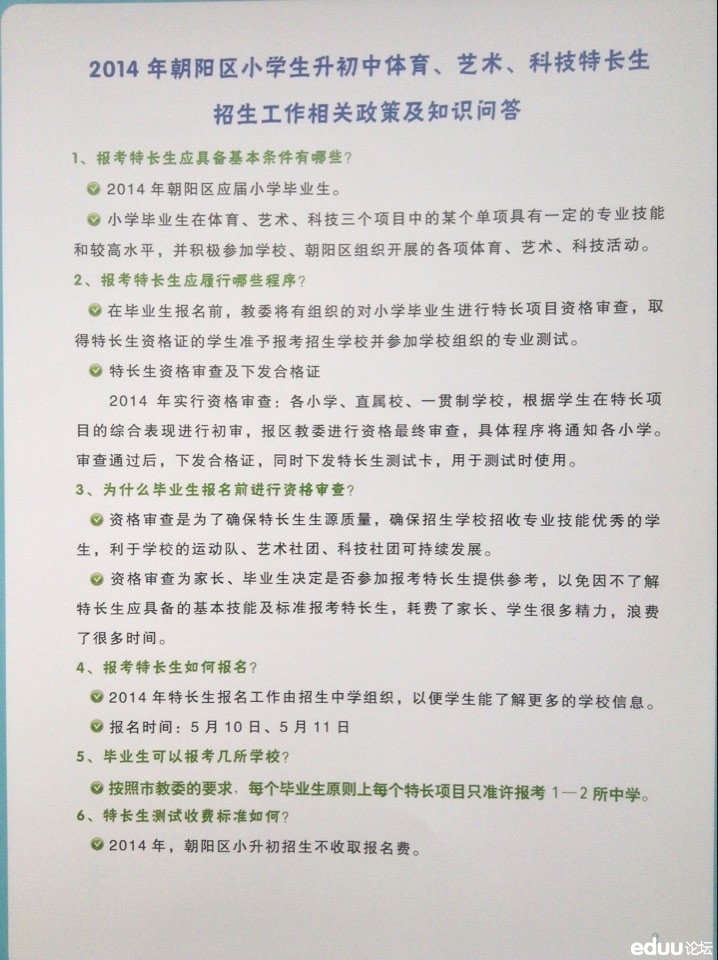 2014 年朝阳区小学生升初中体育、艺术、科技特长生
招生工作相关政策及知识问答
1、报考特长生应具备基本条件有哪些?
2014 年朝阳区应届小学毕业生。
小学毕业生在体育、艺术、科技三个项目中的某个单项具有一定的专业技能
和较高水平，并积极参加学校、朝阳区组织开展的各项体育、艺术、科技活动。
2、报考特长生应履行哪些程序?
在毕业生报名前，教委将有组织的对小学毕业生进行特长项目资格审查，取
得特长生资格证的学生准予报考招生学校并参加学校组织的专业测试。
特长生资格审查及下发合格证
2014 年实行资格审查：各小学、直属校、一贯制学校，根据学生在特长项
目的综合表现进行初审，报区教委进行资格最终审查，具体程序将通知各小学。
审查通过后，下发合格证，同时下发特长生测试卡，用于测试时使用。
3、为什么毕业生报名前进行资格审查?
资格审查是为了确保特长生生源质量，确保招生学校招收专业技能优秀的学
生，利于学校的运动队、艺术社团、科技社团可持续发展。
资格审查为家长、毕业生决定是否参加报考特长生提供参考，以免因不了解
特长生应具备的基本技能及标准报考特长生，耗费了家长、学生很多精力，浪费
了很多时间。
4、报考特长生如何报名?
2014 年特长生报名工作由招生中学组织，以便学生能了解更多的学校信息。
报名时间：5 月 10 日、5 月 11 日
5、毕业生可以报考几所学校?
按照市教委的要求，每个毕业生原则上每个特长项目只准许报考 1—2 所中学。
6、特长生测试收费标准如何?
2014 年，朝阳区小升初招生不收取报名费。
eduu论坛